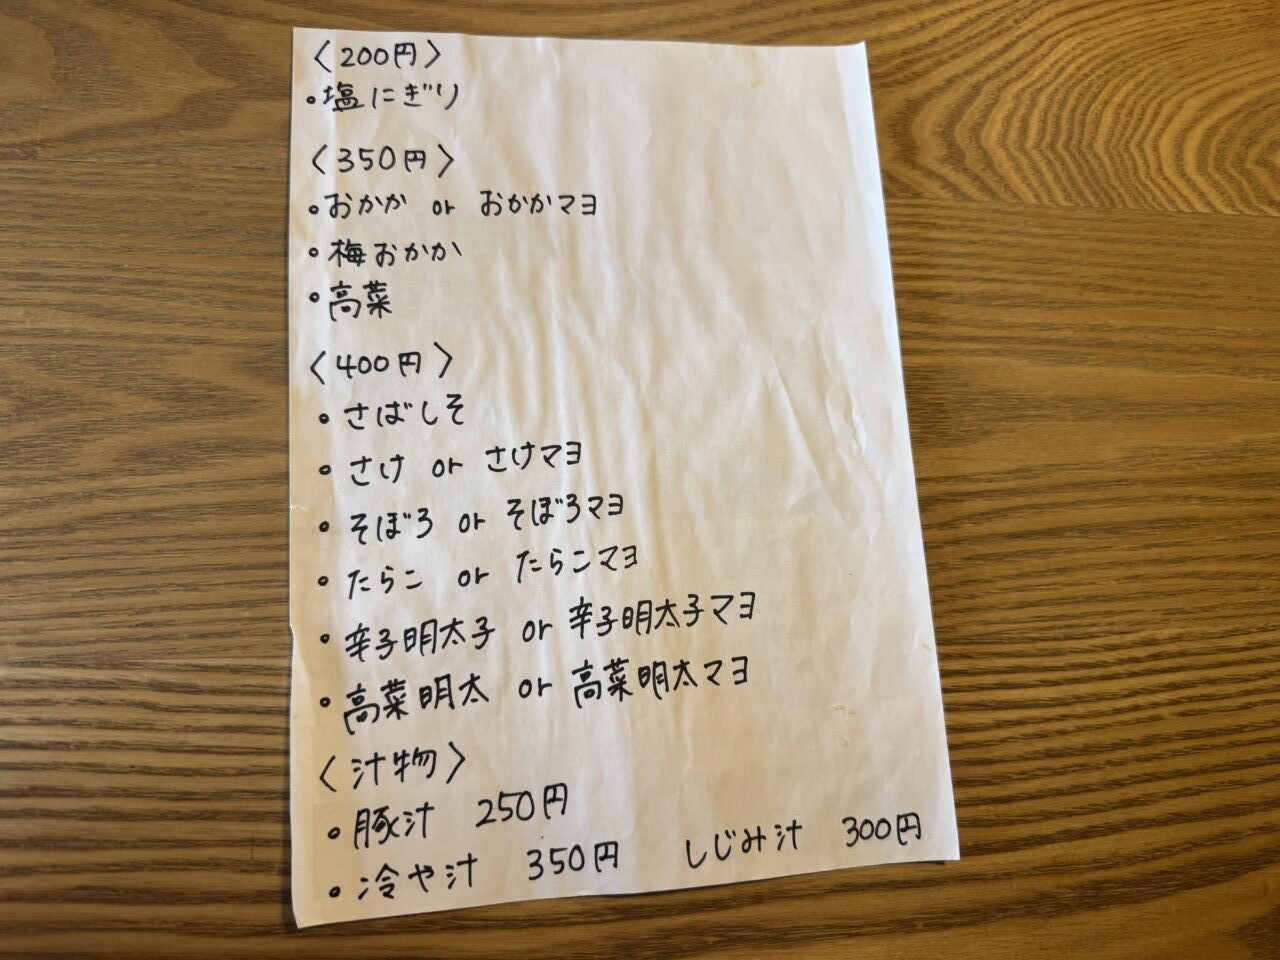 〈200円〉
・塩にぎり
〈350円〉
・おかか or おかかマヨ
・梅おかか
・高菜
〈400円〉
・さばしそ
・さけ or さけマヨ
・そぼろ or そぼろマヨ
・たらこ or たらこマヨ
・辛子明太子 or 辛子明太子マヨ
・高菜明太 or 高菜明太マヨ
〈汁物〉
・豚汁 250円
・冷や汁 350円 しじみ汁 300円